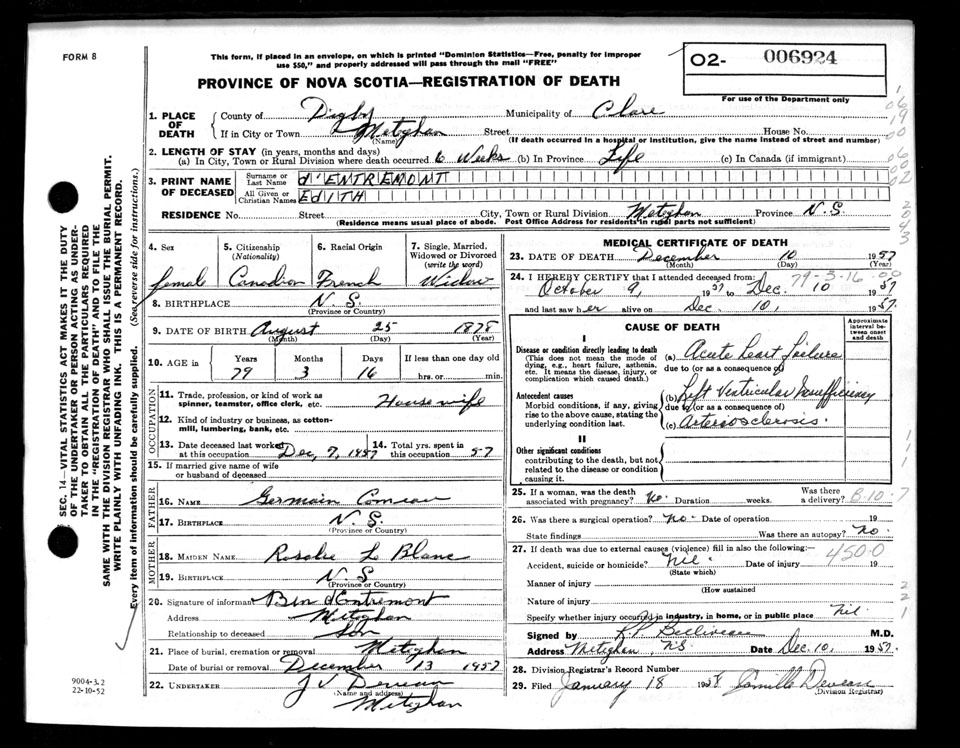 FORM 8
This form, if placed in an envelope, on which is printed "Dominion Statistics—Free, penalty for improper
use $50," and properly addressed will pass through the mail "FREE"
PROVINCE OF NOVA SCOTIA—REGISTRATION OF DEATH
O2- 006924
For use of the Department only
1. PLACE OF DEATH
County of Digby Municipality of Clare
If in City or Town Meteghan Street House No.
(Name) (If death occurred in a hospital or institution, give the name instead of street and number)
2. LENGTH OF STAY (in years, months and days)
(a) In City, Town or Rural Division where death occurred 6 Weeks (b) In Province Life (c) In Canada (if immigrant)
3. PRINT NAME OF DECEASED
Surname or Last Name D'ENTREMONT
All Given or Christian Names EDITH
RESIDENCE No. Street City, Town or Rural Division Meteghan Province N.S.
(Residence means usual place of abode. Post Office Address for residents in rural parts not sufficient)
4. Sex 5. Citizenship (Nationality) 6. Racial Origin 7. Single, Married, Widowed or Divorced (write the word)
female Canadian French Widow
8. BIRTHPLACE N.S.
(Province or Country)
9. DATE OF BIRTH August 25 1878
(Month) (Day) (Year)
10. AGE in Years Months Days If less than one day old
79 3 16 hrs. or min.
OCCUPATION
11. Trade, profession, or kind of work as
spinner, teamster, office clerk, etc. Housewife
12. Kind of industry or business, as cotton-
mill, lumbering, bank, etc.
13. Date deceased last worked
at this occupation Dec, 7, 1957
14. Total yrs. spent in
this occupation 57
15. If married give name of wife
or husband of deceased
FATHER
16. NAME Germain Comeau
17. BIRTHPLACE N.S.
(Province or Country)
MOTHER
18. MAIDEN NAME Rosalie Le Blanc
19. BIRTHPLACE N.S
(Province or Country)
20. Signature of informant Ben d'Entremont
Address Meteghan
Relationship to deceased Son
21. Place of burial, cremation or removal Meteghan
Date of burial or removal December 13 1957
22. UNDERTAKER J V
(Name and address)
Meteghan
MEDICAL CERTIFICATE OF DEATH
23. DATE OF DEATH December 10 1957
(Month) (Day) (Year)
24. I HEREBY CERTIFY that I attended deceased from: 79-3-16
October 9, 1957 to Dec. 10 1957
and last saw her alive on Dec. 10, 1957.
CAUSE OF DEATH
Approximate interval between onset and death
I
Disease or condition directly leading to death
(This does not mean the mode of
dying, e.g., heart failure, asthenia,
etc. It means the disease, injury, or
complication which caused death.)
(a) Acute heart failure
due to (or as a consequence of)
Antecedent causes
Morbid conditions, if any, giving
rise to the above cause, stating the
underlying condition last.
(b) Left Ventricular Insufficiency
due to (or as a consequence of)
(c) Arteriosclerosis.
II
Other significant conditions
contributing to the death, but not
related to the disease or condition
causing it.
25. If a woman, was the death
associated with pregnancy? No. Duration weeks. Was there
a delivery? 8-10-7
26. Was there a surgical operation? No. Date of operation 19
State findings Was there an autopsy? No.
27. If death was due to external causes (violence) fill in also the following:— 4500
Accident, suicide or homicide? Nil. Date of injury 19
(State which)
Manner of injury
(How sustained
Nature of injury
Specify whether injury occurred in industry, in home, or in public place nil.
Signed by Belliveau M.D.
Address Meteghan, N.S. Date Dec. 10, 1957.
28. Division Registrar's Record Number
29. Filed January 18 1958 Camille
(Division Registrar)
SEC. 14—VITAL STATISTICS ACT MAKES IT THE DUTY
OF THE UNDERTAKER OR PERSON ACTING AS UNDER-
TAKER TO OBTAIN ALL THE PARTICULARS REQUIRED
IN THE "REGISTRATION OF DEATH" AND TO FILE THE
SAME WITH THE DIVISION REGISTRAR WHO SHALL ISSUE THE BURIAL PERMIT.
WRITE PLAINLY WITH UNFADING INK. THIS IS A PERMANENT RECORD.
Every item of information should be carefully supplied. (See reverse side for instructions.)
9004-3.2
22-10-52